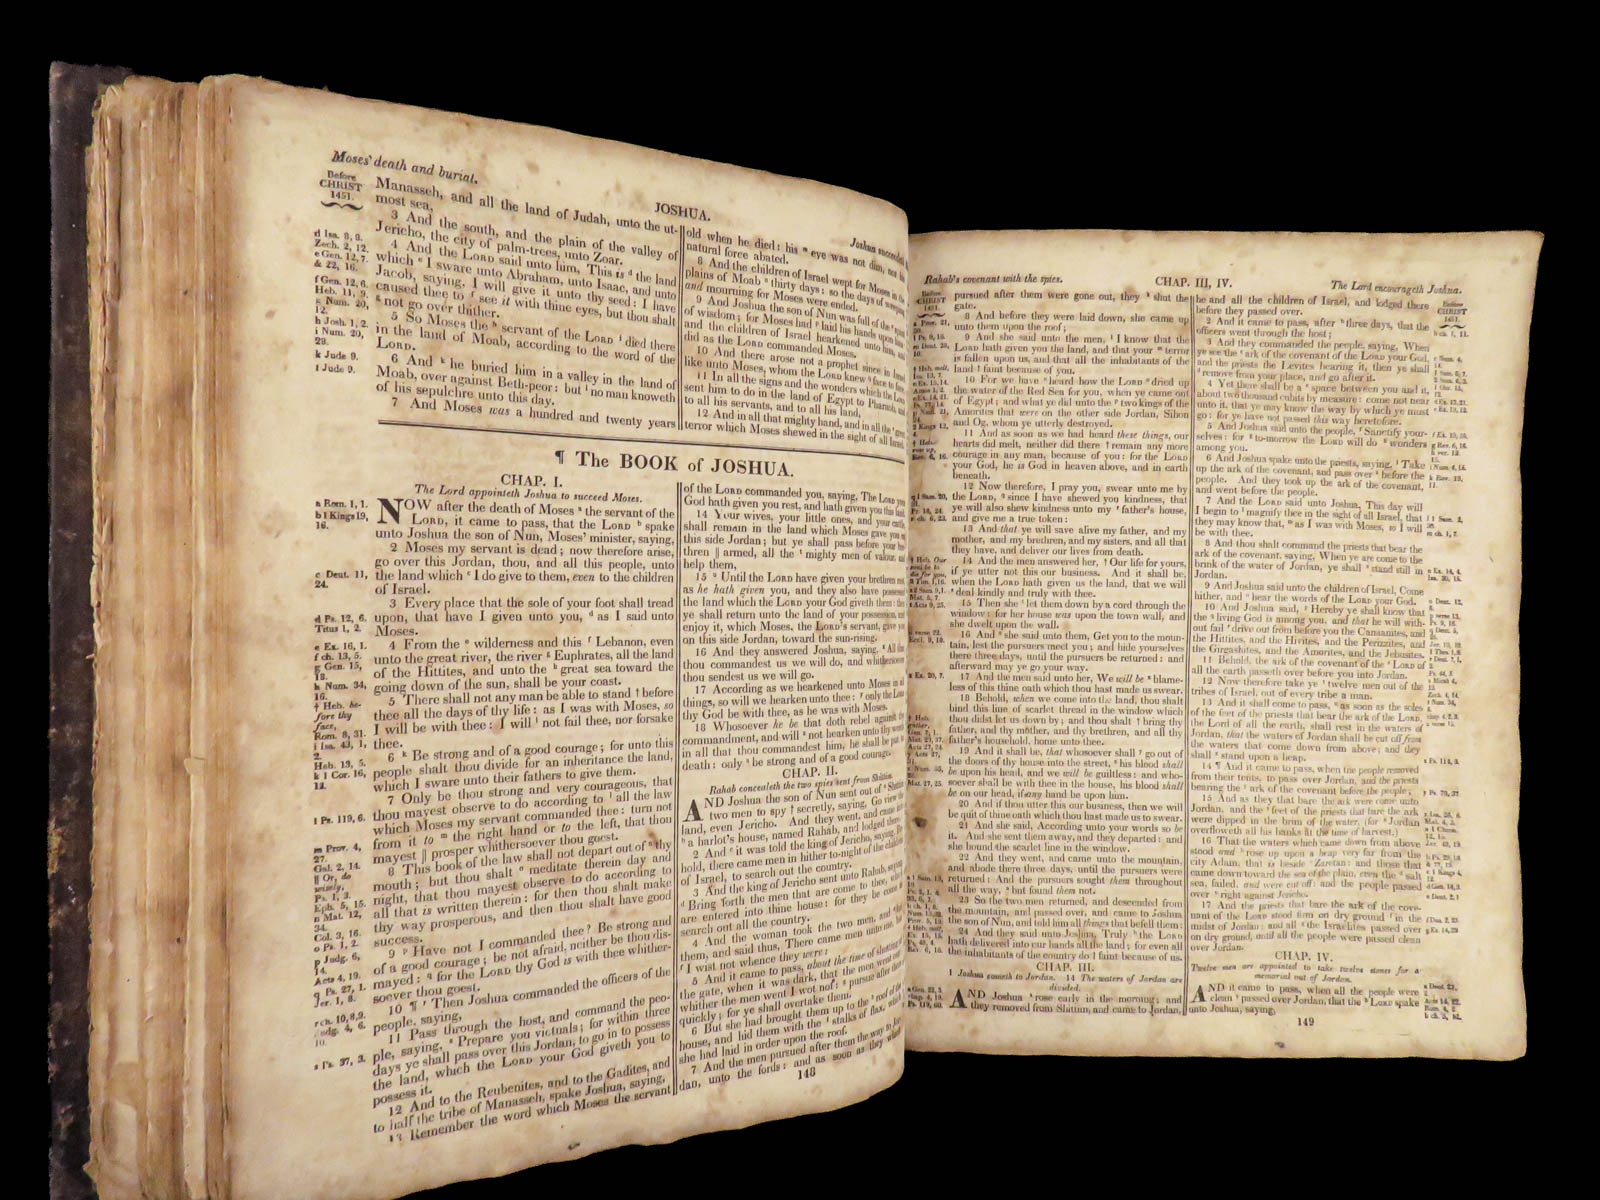 Moses' death and burial.
JOSHUA.
Joshua succeedeth
Before
CHRIST
1451.
Manasseh, and all the land of Judah, unto the ut-
most sea,
3 And the south, and the plain of the valley of
Jericho, the city of palm-trees, unto Zoar.
4 And the LORD said unto him, This is d the land
which e I sware unto Abraham, unto Isaac, and unto
Jacob, saying, I will give it unto thy seed: I have
caused thee to f see it with thine eyes, but thou shalt
g not go over thither.
5 So Moses the h servant of the LORD i died there
in the land of Moab, according to the word of the
LORD.
6 And k he buried him in a valley in the land of
Moab, over against Beth-peor: but l no man knoweth
of his sepulchre unto this day.
7 And Moses was a hundred and twenty years
d Isa. 8, 9.
Zech. 2, 12.
e Gen. 12, 7.
& 22, 16.
f Gen. 12, 6.
Heb. 11, 9.
g Num. 20,
12.
h Josh. 1, 2.
i Num. 20,
29.
k Jude 9.
l Jude 9.
old when he died: his m eye was not dim, nor his
natural force abated.
8 And the children of Israel wept for Moses in the
plains of Moab n thirty days: so the days of weeping
and mourning for Moses were ended.
9 And Joshua the son of Nun was full of the o spirit
of wisdom; for Moses had p laid his hands upon him:
and the children of Israel hearkened unto him, and
did as the LORD commanded Moses.
10 And there arose not a prophet since in Israel
like unto Moses, whom the LORD knew q face to face,
11 In all the signs and the wonders which the LORD
sent him to do in the land of Egypt to Pharaoh, and
to all his servants, and to all his land,
12 And in all that mighty hand, and in all the r great
terror which Moses shewed in the sight of all Israel.
¶ The BOOK of JOSHUA.
CHAP. I.
The Lord appointeth Joshua to succeed Moses.
NOW after the death of Moses a the servant of the
LORD, it came to pass, that the LORD b spake
unto Joshua the son of Nun, Moses' minister, saying,
2 Moses my servant is dead; now therefore arise,
go over this Jordan, thou, and all this people, unto
the land which c I do give to them, even to the children
of Israel.
3 Every place that the sole of your foot shall tread
upon, that have I given unto you, d as I said unto
Moses.
4 From the e wilderness and this f Lebanon, even
unto the great river, the river g Euphrates, all the land
of the Hittites, and unto the h great sea toward the
going down of the sun, shall be your coast.
5 There shall not any man be able to stand † before
thee all the days of thy life: as I was with Moses, so
I will be with thee: I will i not fail thee, nor forsake
thee.
6 k Be strong and of a good courage; for unto this
people shalt thou divide for an inheritance the land,
which I sware unto their fathers to give them.
7 Only be thou strong and very courageous, that
thou mayest observe to do according to l all the law
which Moses my servant commanded thee: turn not
from it to m the right hand or to the left, that thou
mayest || prosper whithersoever thou goest.
8 This book of the law shall not depart out of n thy
mouth; but thou shalt o meditate therein day and
night, that thou mayest observe to do according to
all that is written therein: for then thou shalt make
thy way prosperous, and then thou shalt have good
success.
9 p Have not I commanded thee? Be strong and
of a good courage; be not afraid, neither be thou dis-
mayed: q for the LORD thy God is with thee whither-
soever thou goest.
10 ¶ r Then Joshua commanded the officers of the
people, saying,
11 Pass through the host, and command the peo-
ple, saying, s Prepare you victuals; for within three
days ye shall pass over this Jordan, to go in to possess
the land, which the LORD your God giveth you to
possess it.
12 And to the Reubenites, and to the Gadites, and
to half the tribe of Manasseh, spake Joshua, saying,
13 Remember the word which Moses the servant
a Rom. 1, 1.
b 1 Kings 19,
16.
c Deut. 11,
24.
d Ps. 12, 6.
Titus 1, 2.
e Ex. 16, 1.
f ch. 13, 5.
g Gen. 15,
18.
h Num. 34,
16.
† Heb. be-
fore thy
face,
Rom. 8, 31.
i Isa. 43, 1,
2.
Heb. 13, 5.
k 1 Cor. 16,
13.
l Ps. 119, 6.
m Prov. 4,
27.
Gal. 2, 14.
|| Or, do
wisely,
Ps. 1, 3.
Eph. 5, 15.
n Mat. 12,
34.
Col. 3, 16.
o Ps. 1, 2.
p Judg. 6,
14.
Acts 4, 19.
q Ps. 27, 1.
Jer. 1, 8.
r ch. 10, 8, 9.
Judg. 4, 6.
10.
s Ps. 37, 3.
of the LORD commanded you, saying, The LORD your
God hath given you rest, and hath given you this land.
14 Your wives, your little ones, and your cattle,
shall remain in the land which Moses gave you on
this side Jordan; but ye shall pass before your bre-
thren || armed, all the t mighty men of valour, and
help them,
15 u Until the LORD have given your brethren rest,
as he hath given you, and they also have possessed
the land which the LORD your God giveth them: then
ye shall return unto the land of your possession, and
enjoy it, which Moses, the LORD's servant, gave you
on this side Jordan, toward the sun-rising.
16 And they answered Joshua, saying, x All that
thou commandest us we will do, and whithersoever
thou sendest us we will go.
17 According as we hearkened unto Moses in all
things, so will we hearken unto thee: y only the LORD
thy God be with thee, as he was with Moses.
18 Whosoever he be that doth rebel against thy
commandment, and will z not hearken unto thy words
in all that thou commandest him, he shall be put to
death: only a be strong and of a good courage.
CHAP. II.
Rahab concealeth the two spies sent from Shittim.
AND Joshua the son of Nun sent out of a Shittim
two men to spy † secretly, saying, Go view the
land, even Jericho. And they went, and came into
b a harlot's house, named Rahab, and lodged there.
2 And c it was told the king of Jericho, saying, Be-
hold, there came men in hither to-night of the children
of Israel, to search out the country.
3 And the king of Jericho sent unto Rahab, saying,
d Bring forth the men that are come to thee, which
are entered into thine house: for they be come to
search out all the country.
4 And the woman took the two men, and hid
them, and said thus, There came men unto me, but
f I wist not whence they were:
5 And it came to pass, about the time of shutting of
the gate, when it was dark, that the men went out:
whither the men went I wot not: g pursue after them
quickly; for ye shall overtake them.
6 But she had brought them up to the h roof of the
house, and hid them with the i stalks of flax, which
she had laid in order upon the roof.
7 And the men pursued after them the way to Jor-
dan, unto the fords: and as soon as they which
148
Rahab's covenant with the spies.
CHAP. III, IV.
The Lord encourageth Joshua.
Before
CHRIST
1451.
pursued after them were gone out, they k shut the
gate.
8 And before they were laid down, she came up
unto them upon the roof;
9 And she said unto the men, l I know that the
LORD hath given you the land, and that your m terror
is fallen upon us, and that all the inhabitants of the
land † faint because of you.
10 For we have n heard how the LORD o dried up
the water of the Red Sea for you, when ye came out
of Egypt; and what ye did unto the p two kings of the
Amorites that were on the other side Jordan, Sihon
and Og, whom ye utterly destroyed.
11 And as soon as we had heard these things, our
hearts did melt, neither did there † remain any more
courage in any man, because of you: for the LORD
your God, he is God in heaven above, and in earth
beneath.
12 Now therefore, I pray you, swear unto me by
the LORD, q since I have shewed you kindness, that
ye will also shew kindness unto my r father's house,
and give me a true token:
13 And that ye will save alive my father, and my
mother, and my brethren, and my sisters, and all that
they have, and deliver our lives from death.
14 And the men answered her, † Our life for yours,
if ye utter not this our business. And it shall be,
when the LORD hath given us the land, that we will
s deal kindly and truly with thee.
15 Then she t let them down by a cord through the
window: for her house was upon the town wall, and
she dwelt upon the wall.
16 And u she said unto them, Get you to the moun-
tain, lest the pursuers meet you; and hide yourselves
there three days, until the pursuers be returned: and
afterward may ye go your way.
17 And the men said unto her, We will be x blame-
less of this thine oath which thou hast made us swear.
18 Behold, when we come into the land, thou shalt
bind this line of scarlet thread in the window which
thou didst let us down by; and thou shalt † bring thy
father, and thy mother, and thy brethren, and all thy
father's household, home unto thee.
19 And it shall be, that whosoever shall y go out of
the doors of thy house into the street, z his blood shall
be upon his head, and we will be guiltless: and who-
soever shall be with thee in the house, his blood shall
be on our head, if any hand be upon him.
20 And if thou utter this our business, then we will
be quit of thine oath which thou hast made us to swear.
21 And she said, According unto your words so be
it. And she sent them away, and they departed: and
she bound the scarlet line in the window.
22 And they went, and came unto the mountain,
and abode there three days, until the pursuers were
returned: And the pursuers sought them throughout
all the way, a but found them not.
23 So the two men returned, and descended from
the mountain, and passed over, and came to Joshua
the son of Nun, and told him all things that befell them:
24 And they said unto Joshua, Truly b the LORD
hath delivered into our hands all the land; for even all
the inhabitants of the country do † faint because of us.
CHAP. III.
1 Joshua cometh to Jordan. 14 The waters of Jordan are
divided.
AND Joshua a rose early in the morning; and
they removed from Shittim, and came to Jordan,
he and all the children of Israel, and lodged there
before they passed over.
2 And it came to pass, after b three days, that the
officers went through the host;
3 And they commanded the people, saying, When
ye see the c ark of the covenant of the LORD your God,
and the priests the Levites bearing it, then ye shall
d remove from your place, and go after it.
4 Yet there shall be a e space between you and it,
about two thousand cubits by measure: come not near
unto it, that ye may know the way by which ye must
go: for ye have not passed this way heretofore.
5 And Joshua said unto the people, f Sanctify your-
selves: for g to-morrow the LORD will do h wonders
among you.
6 And Joshua spake unto the priests, saying, i Take
up the ark of the covenant, and pass over k before the
people. And they took up the ark of the covenant,
and went before the people.
7 And the LORD said unto Joshua, This day will
I begin to l magnify thee in the sight of all Israel, that
they may know that, m as I was with Moses, so I will
be with thee.
8 And thou shalt command the priests that bear the
ark of the covenant, saying, When ye are come to the
brink of the water of Jordan, ye shall n stand still in
Jordan.
9 And Joshua said unto the children of Israel, Come
hither, and o hear the words of the LORD your God.
10 And Joshua said, p Hereby ye shall know that
the q living God is among you, and that he will with-
out fail r drive out from before you the Canaanites, and
the Hittites, and the Hivites, and the Perizzites, and
the Girgashites, and the Amorites, and the Jebusites.
11 Behold, the ark of the covenant of the s LORD of
all the earth passeth over before you into Jordan.
12 Now therefore take ye t twelve men out of the
tribes of Israel, out of every tribe a man.
13 And it shall come to pass, u as soon as the soles
of the feet of the priests that bear the ark of the LORD,
the Lord of all the earth, shall rest in the waters of
Jordan, that the waters of Jordan shall be cut off from
the waters that come down from above; and they
shall x stand upon a heap.
14 ¶ And it came to pass, when the people removed
from their tents, to pass over Jordan, and the priests
bearing the y ark of the covenant before the people;
15 And as they that bare the ark were come unto
Jordan, and the z feet of the priests that bare the ark
were dipped in the brim of the water, (for a Jordan
overfloweth all his banks at the time of harvest,)
16 That the waters which came down from above
stood and b rose up upon a heap very far from the
city Adam, that is beside c Zaretan: and those that
came down toward the sea of the plain, even the d salt
sea, failed, and were cut off: and the people passed
over e right against Jericho.
17 And the priests that bare the ark of the cove-
nant of the LORD stood firm on dry ground f in the
midst of Jordan; and all g the Israelites passed over
on dry ground, until all the people were passed clean
over Jordan.
CHAP. IV.
Twelve men are appointed to take twelve stones for a
memorial out of Jordan.
AND it came to pass, when all the people were
clean a passed over Jordan, that the b LORD spake
unto Joshua, saying,
149
Before
CHRIST
1451.